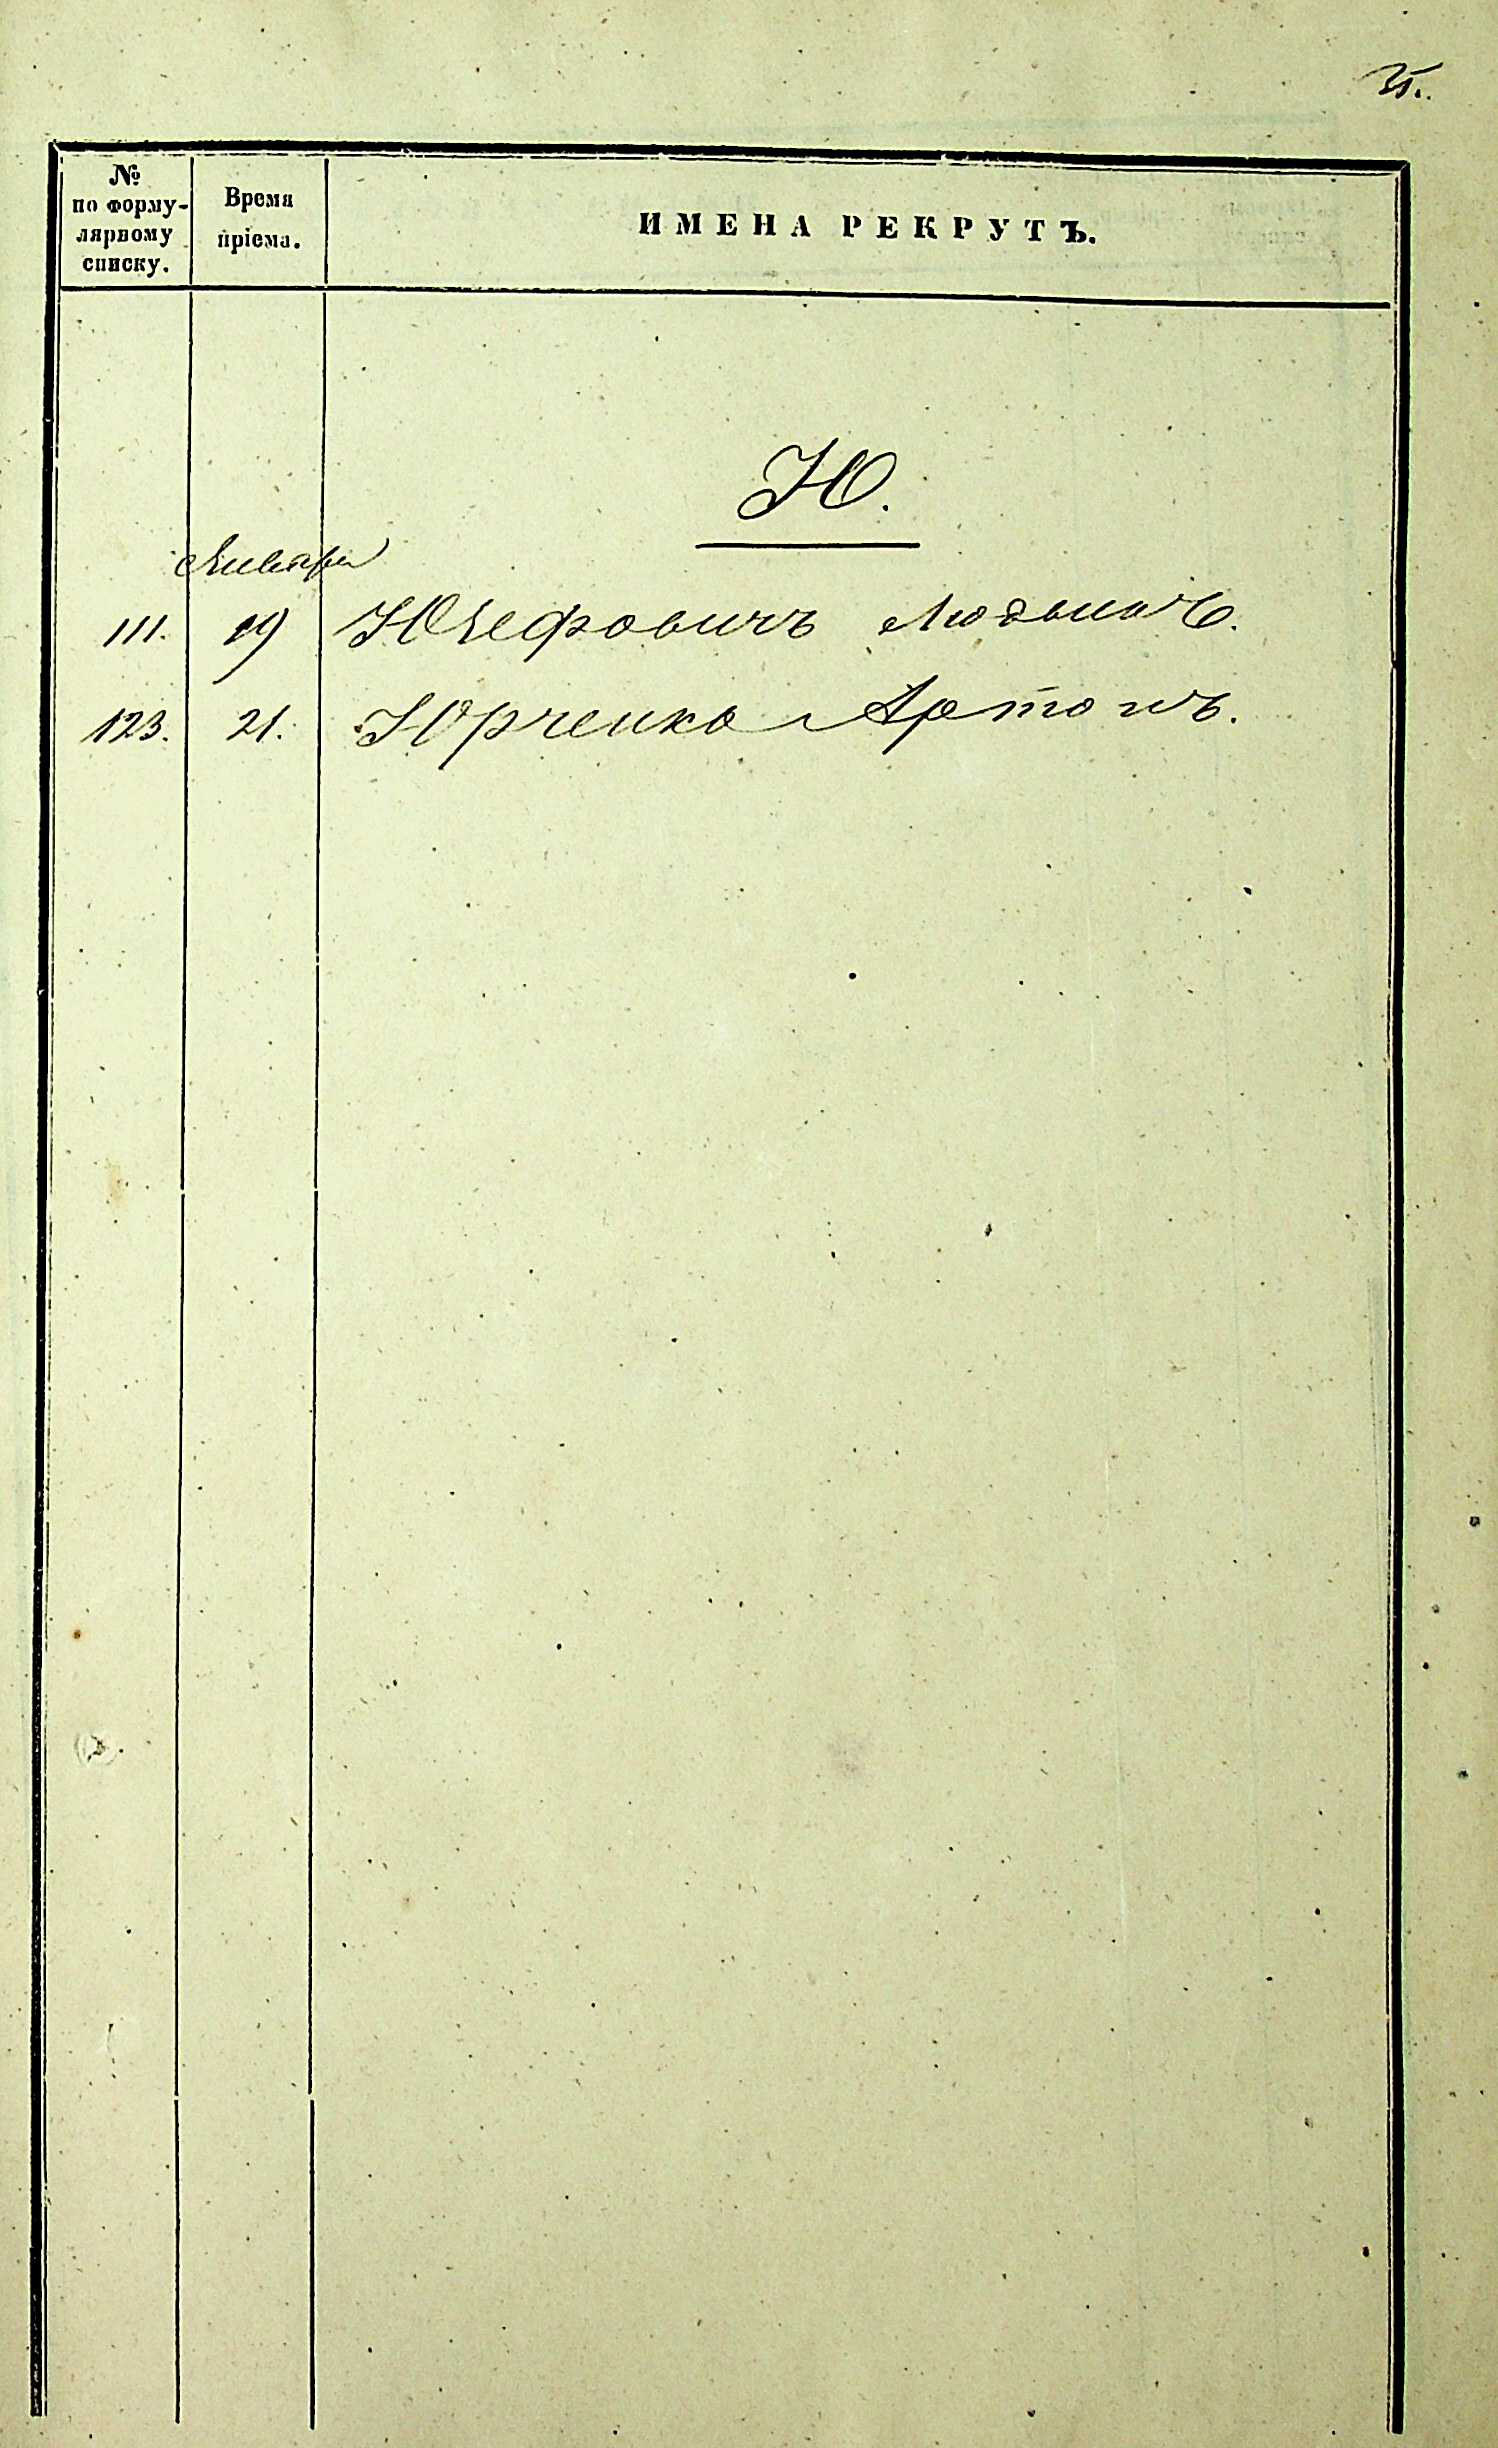 35.
№ по форму-
лярному
списку.
Время
пріема.
ИМЕНА РЕКРУТЪ.
Ю.
Января
111. 19 Юзефовичъ Людвигъ.
123. 21. Юрченко Артомъ.